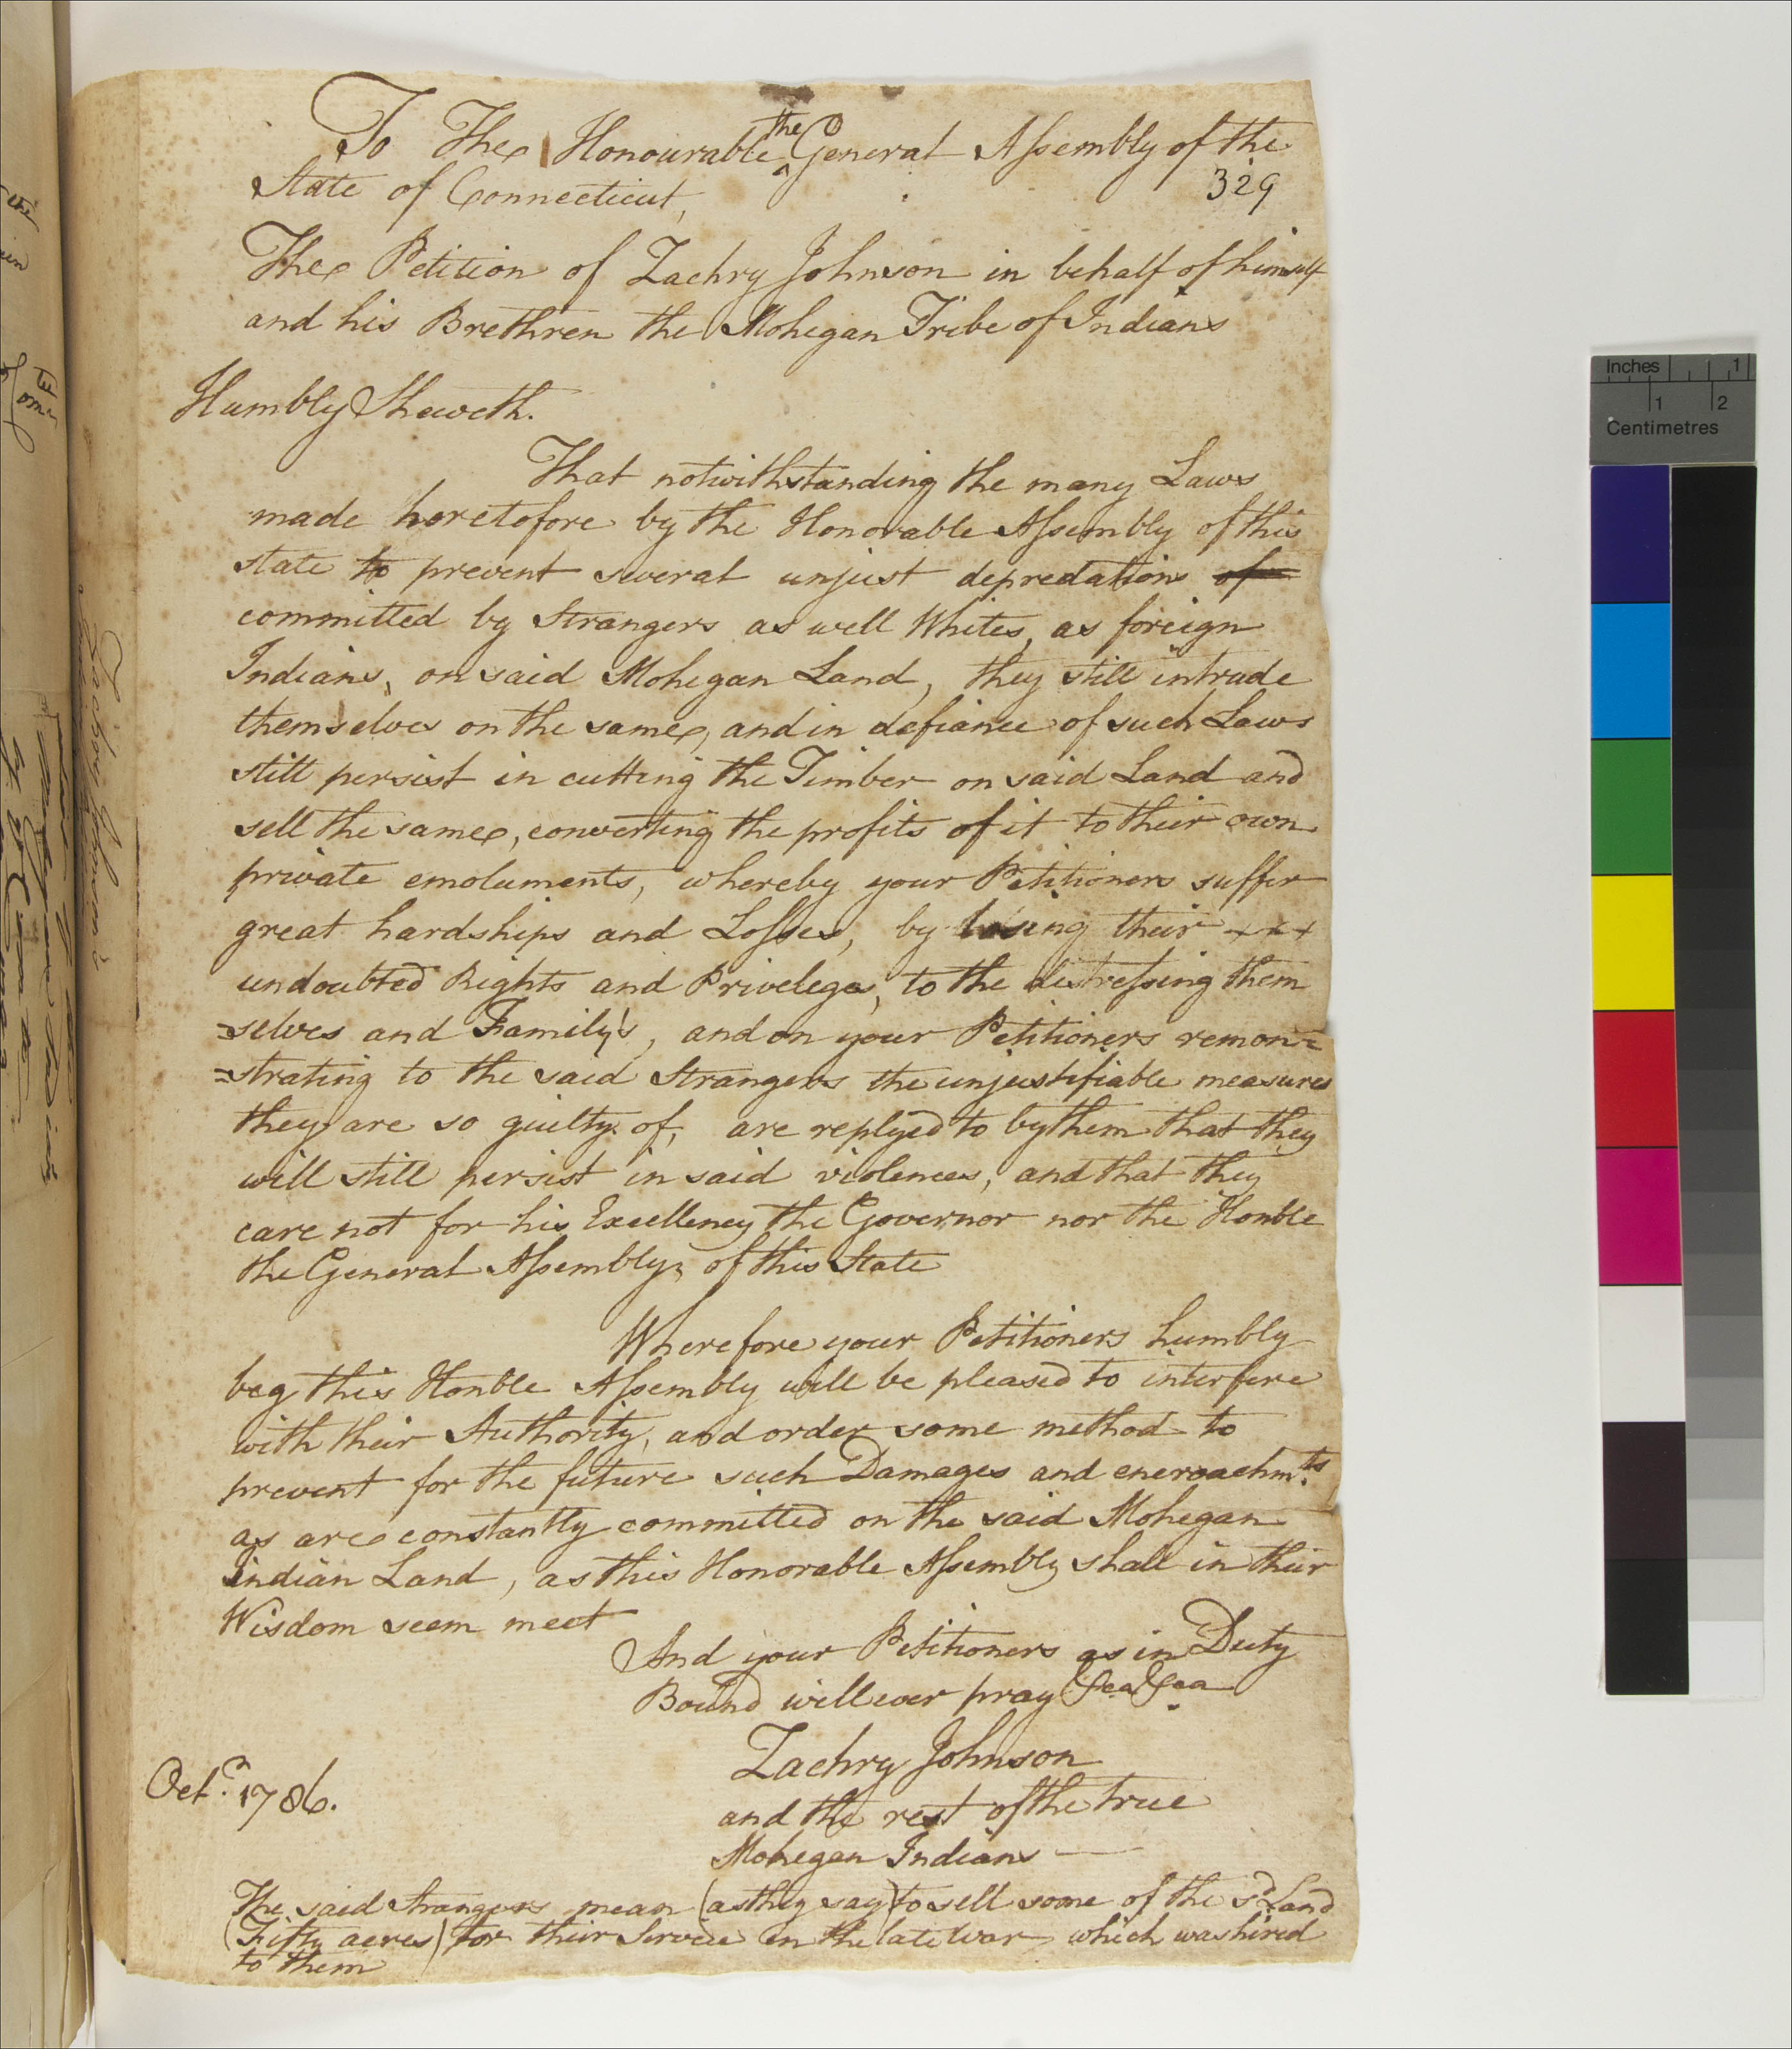 To The Honourable the General Assembly of the
State of Connecticut,
329
The Petition of Zachry Johnson in behalf of himself
and his Brethren the Mohegan Tribe of Indians
Humbly Sheweth.
That notwithstanding the many Laws
made heretofore by the Honorable Assembly of this
state to prevent several unjust depredations of
committed by Strangers as well Whites, as foreign
Indians, on said Mohegan Land, they still intrude
themselves on the same, and in defiance of such Laws
still persist in cutting the Timber on said Land and
sell the same, converting the profits of it to their own
private emoluments, whereby your Petitioners suffer
great hardships and Losses, by losing their
undoubted Rights and Priveleges, to the distressing them
=selves and Family's, and on your Petitioners remon=
=strating to the said Strangers the unjustifiable measures
they are so guilty of, are replyed to by them that they
will still persist in said violences, and that they
care not for his Excellency the Governor nor the Honble
the General Assembly, of this State
Wherefore your Petitioners humbly
beg this Honble Assembly will be pleased to interfere
with their Authority, and order some method to
prevent for the future such Damages and encroachmts.
as are constantly committed on the said Mohegan
indian Land, as this Honorable Assembly shall in their
Wisdom seem meet
And your Petitioners as in Duty
Bound will ever pray &ca &ca
Zachry Johnson
and the rest of the true
Mohegan Indians
Octr. 1786.
The said Strangers mean (as they say) to sell some of the sd Land
(Fifty acres) for their Service in the late War which was hired
to them